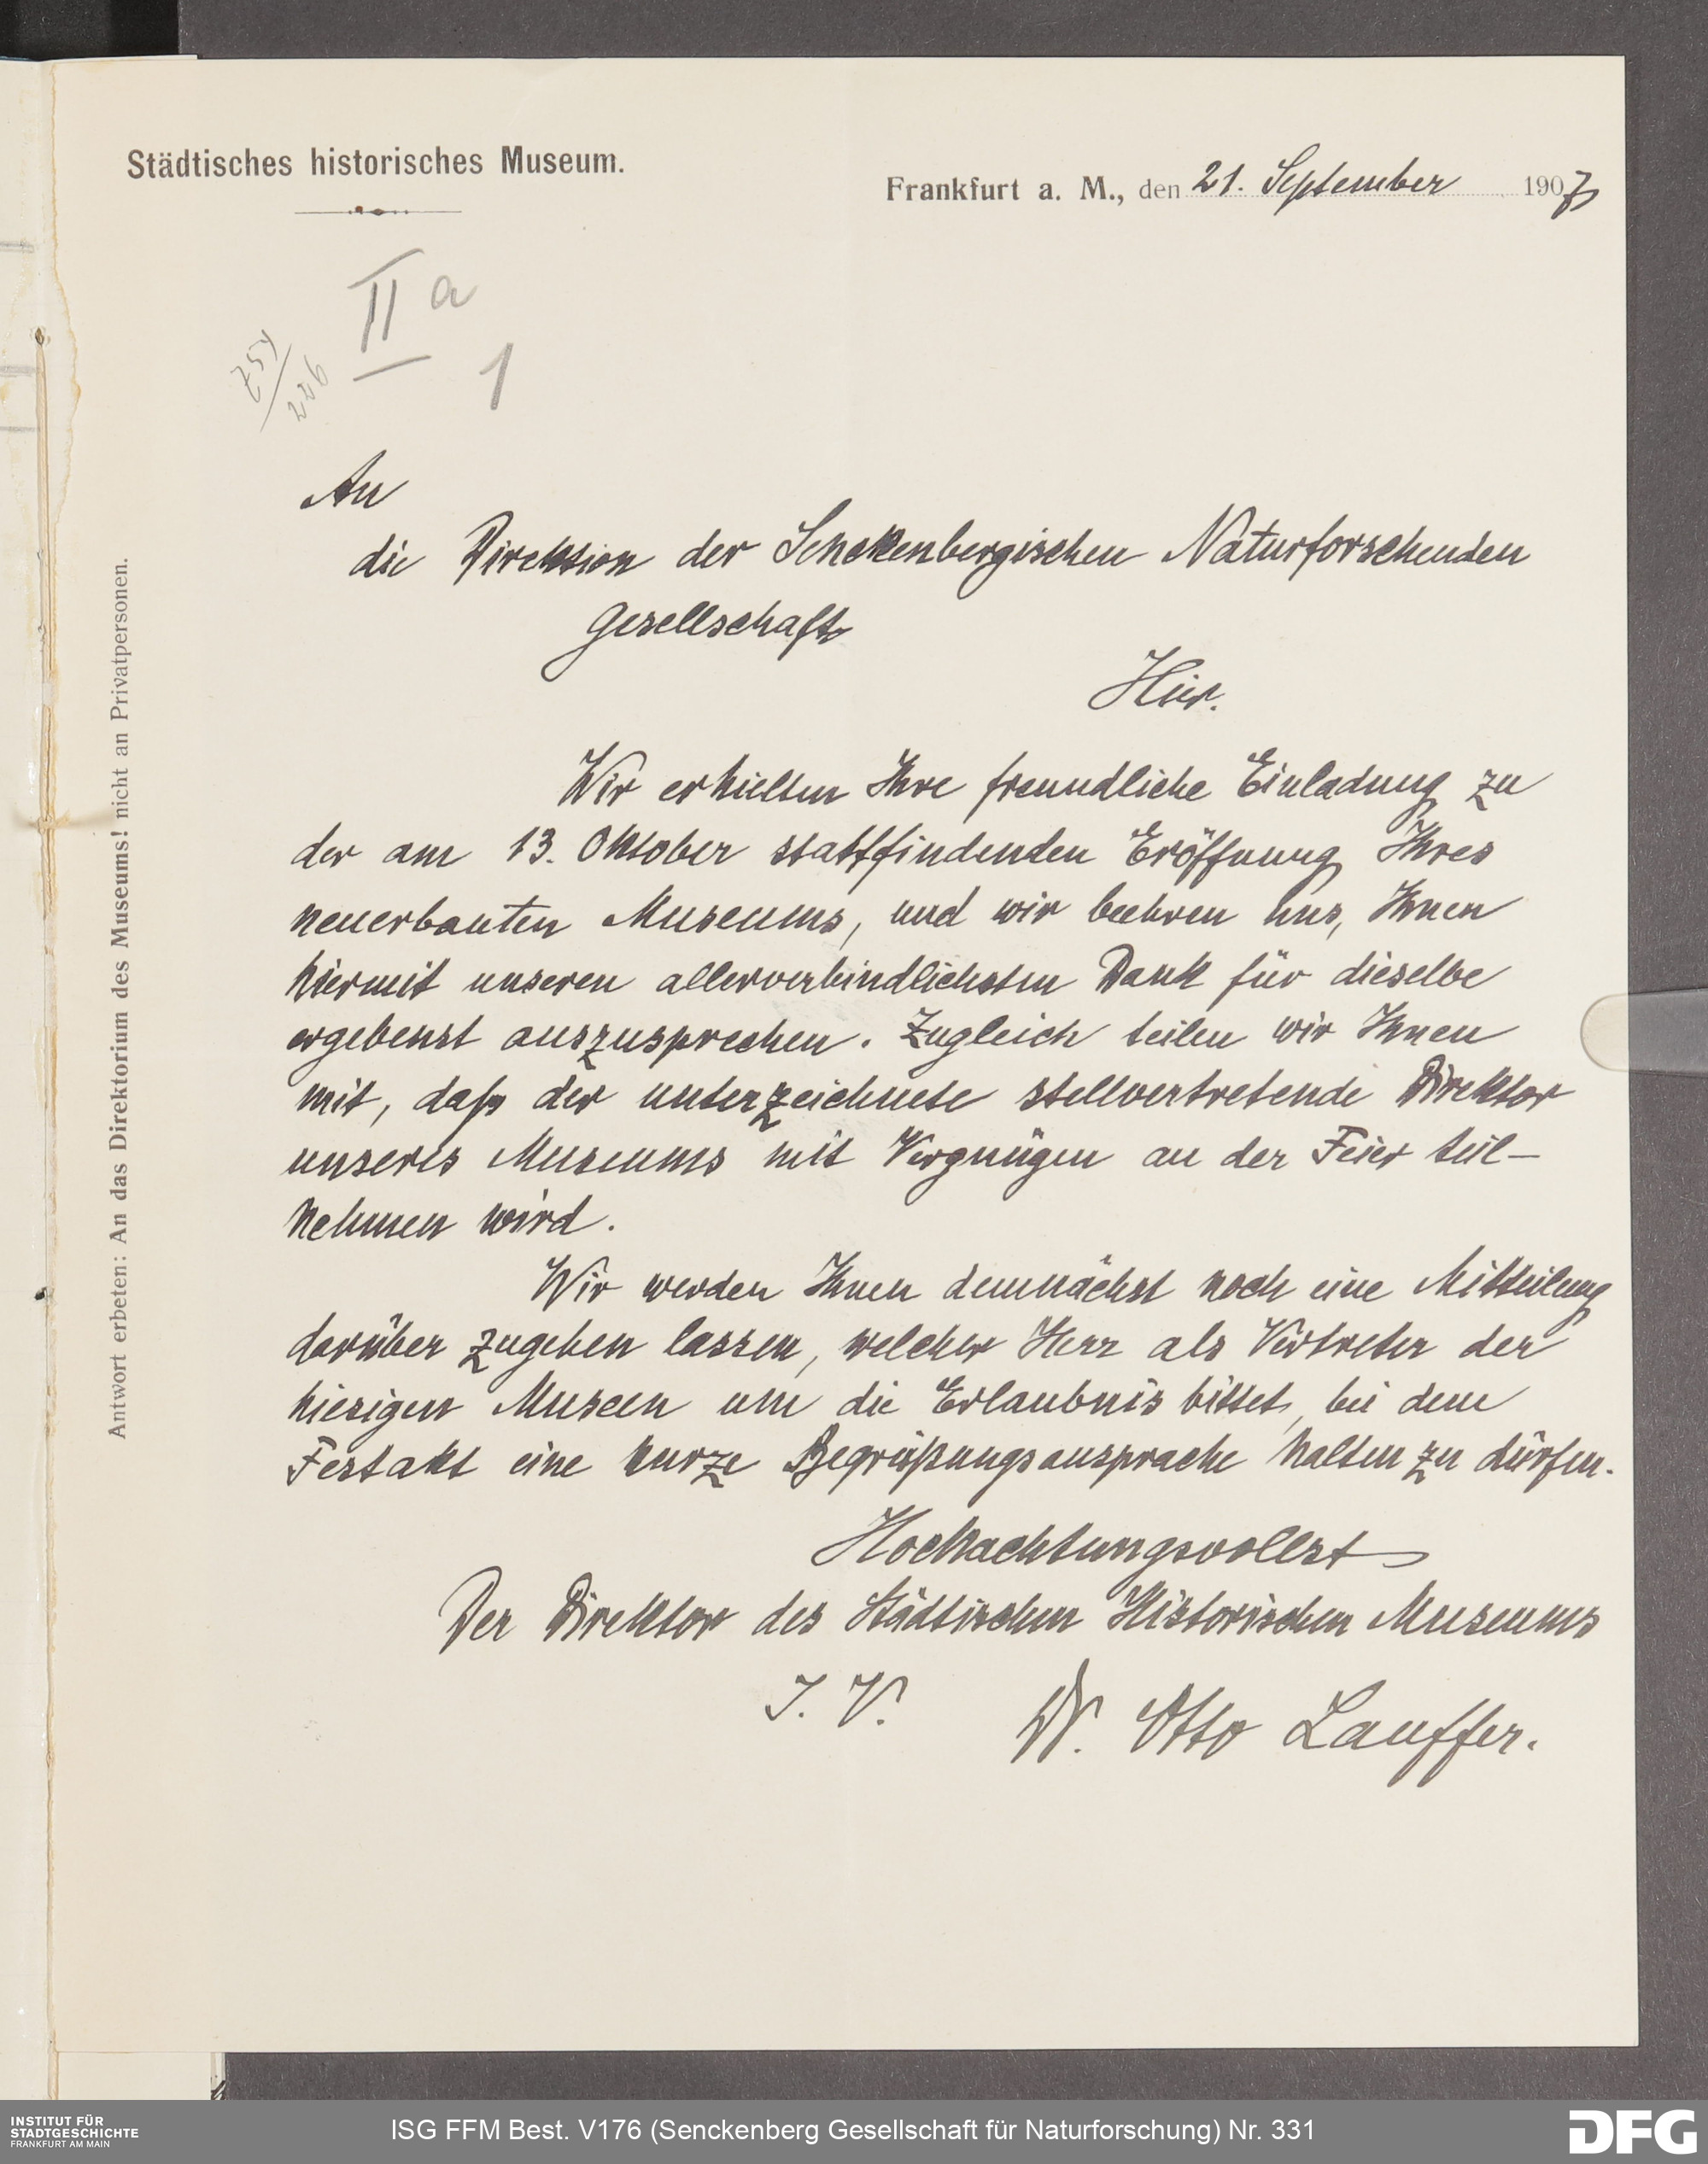 Städtisches historisches Museum.
Frankfurt a. M., den 21. September 1907
II a
1
An
die Direktion der Senckenbergischen Naturforschenden
Gesellschaft
Hier.
Wir erhielten Ihre freundliche Einladung zu
der am 13. Oktober stattfindenden Eröffnung Ihres
neuerbauten Museums, und wir beehren uns, Ihnen
hiermit unseren allerverbindlichsten Dank für dieselbe
ergebenst auszusprechen. Zugleich teilen wir Ihnen
mit, daß der unterzeichnete stellvertretende Direktor
unseres Museums mit Vergnügen an der Feier teil-
nehmen wird.
Wir werden Ihnen demnächst noch eine Mitteilung
darüber zugehen lassen, welcher Herr als Vertreter der
hiesigen Museen um die Erlaubnis bittet, bei dem
Festakt eine kurze Begrüßungsansprache halten zu dürfen.
Hochachtungsvollst
Der Direktor des Städtischen Historischen Museums
I. V.
Dr. Otto Lauffer.
Antwort erbeten: An das Direktorium des Museums! nicht an Privatpersonen.
INSTITUT FÜR
STADTGESCHICHTE
FRANKFURT AM MAIN
ISG FFM Best. V176 (Senckenberg Gesellschaft für Naturforschung) Nr. 331
DFG